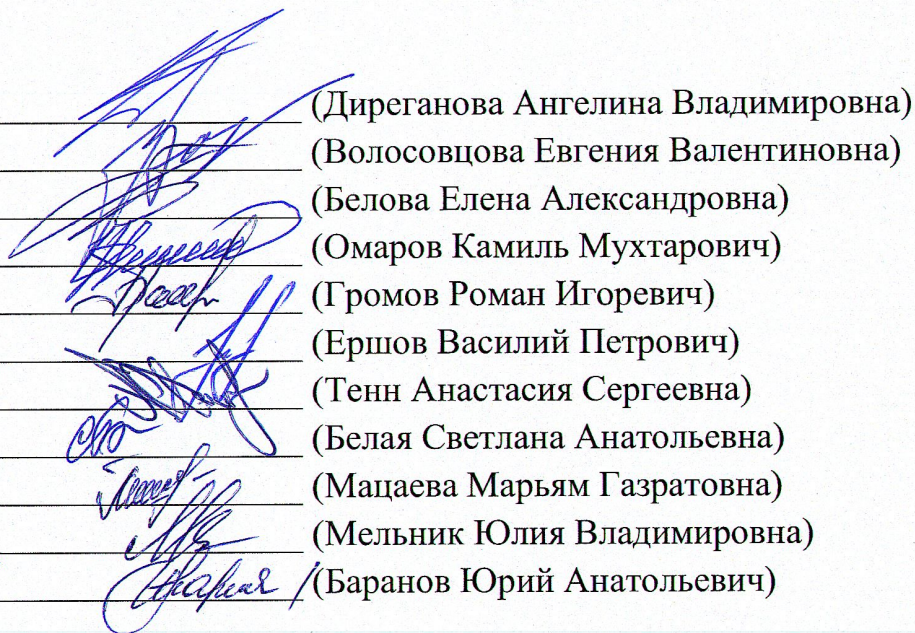 (Диреганова Ангелина Владимировна)
(Волосовцова Евгения Валентиновна)
(Белова Елена Александровна)
(Омаров Камиль Мухтарович)
(Громов Роман Игоревич)
(Ершов Василий Петрович)
(Тенн Анастасия Сергеевна)
(Белая Светлана Анатольевна)
(Мацаева Марьям Газратовна)
(Мельник Юлия Владимировна)
(Баранов Юрий Анатольевич)